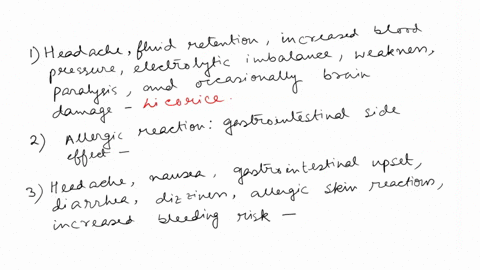 1) Headache, fluid retention, increased blood
pressure, electrolytic imbalance, weakness,
paralysis, and occasionally brain
damage – Licorice.
2) Allergic reaction: gastrointestinal side
effect –
3) Headache, nausea, gastrointestinal upset,
diarrhea, dizziness, allergic skin reactions,
increased bleeding risk –